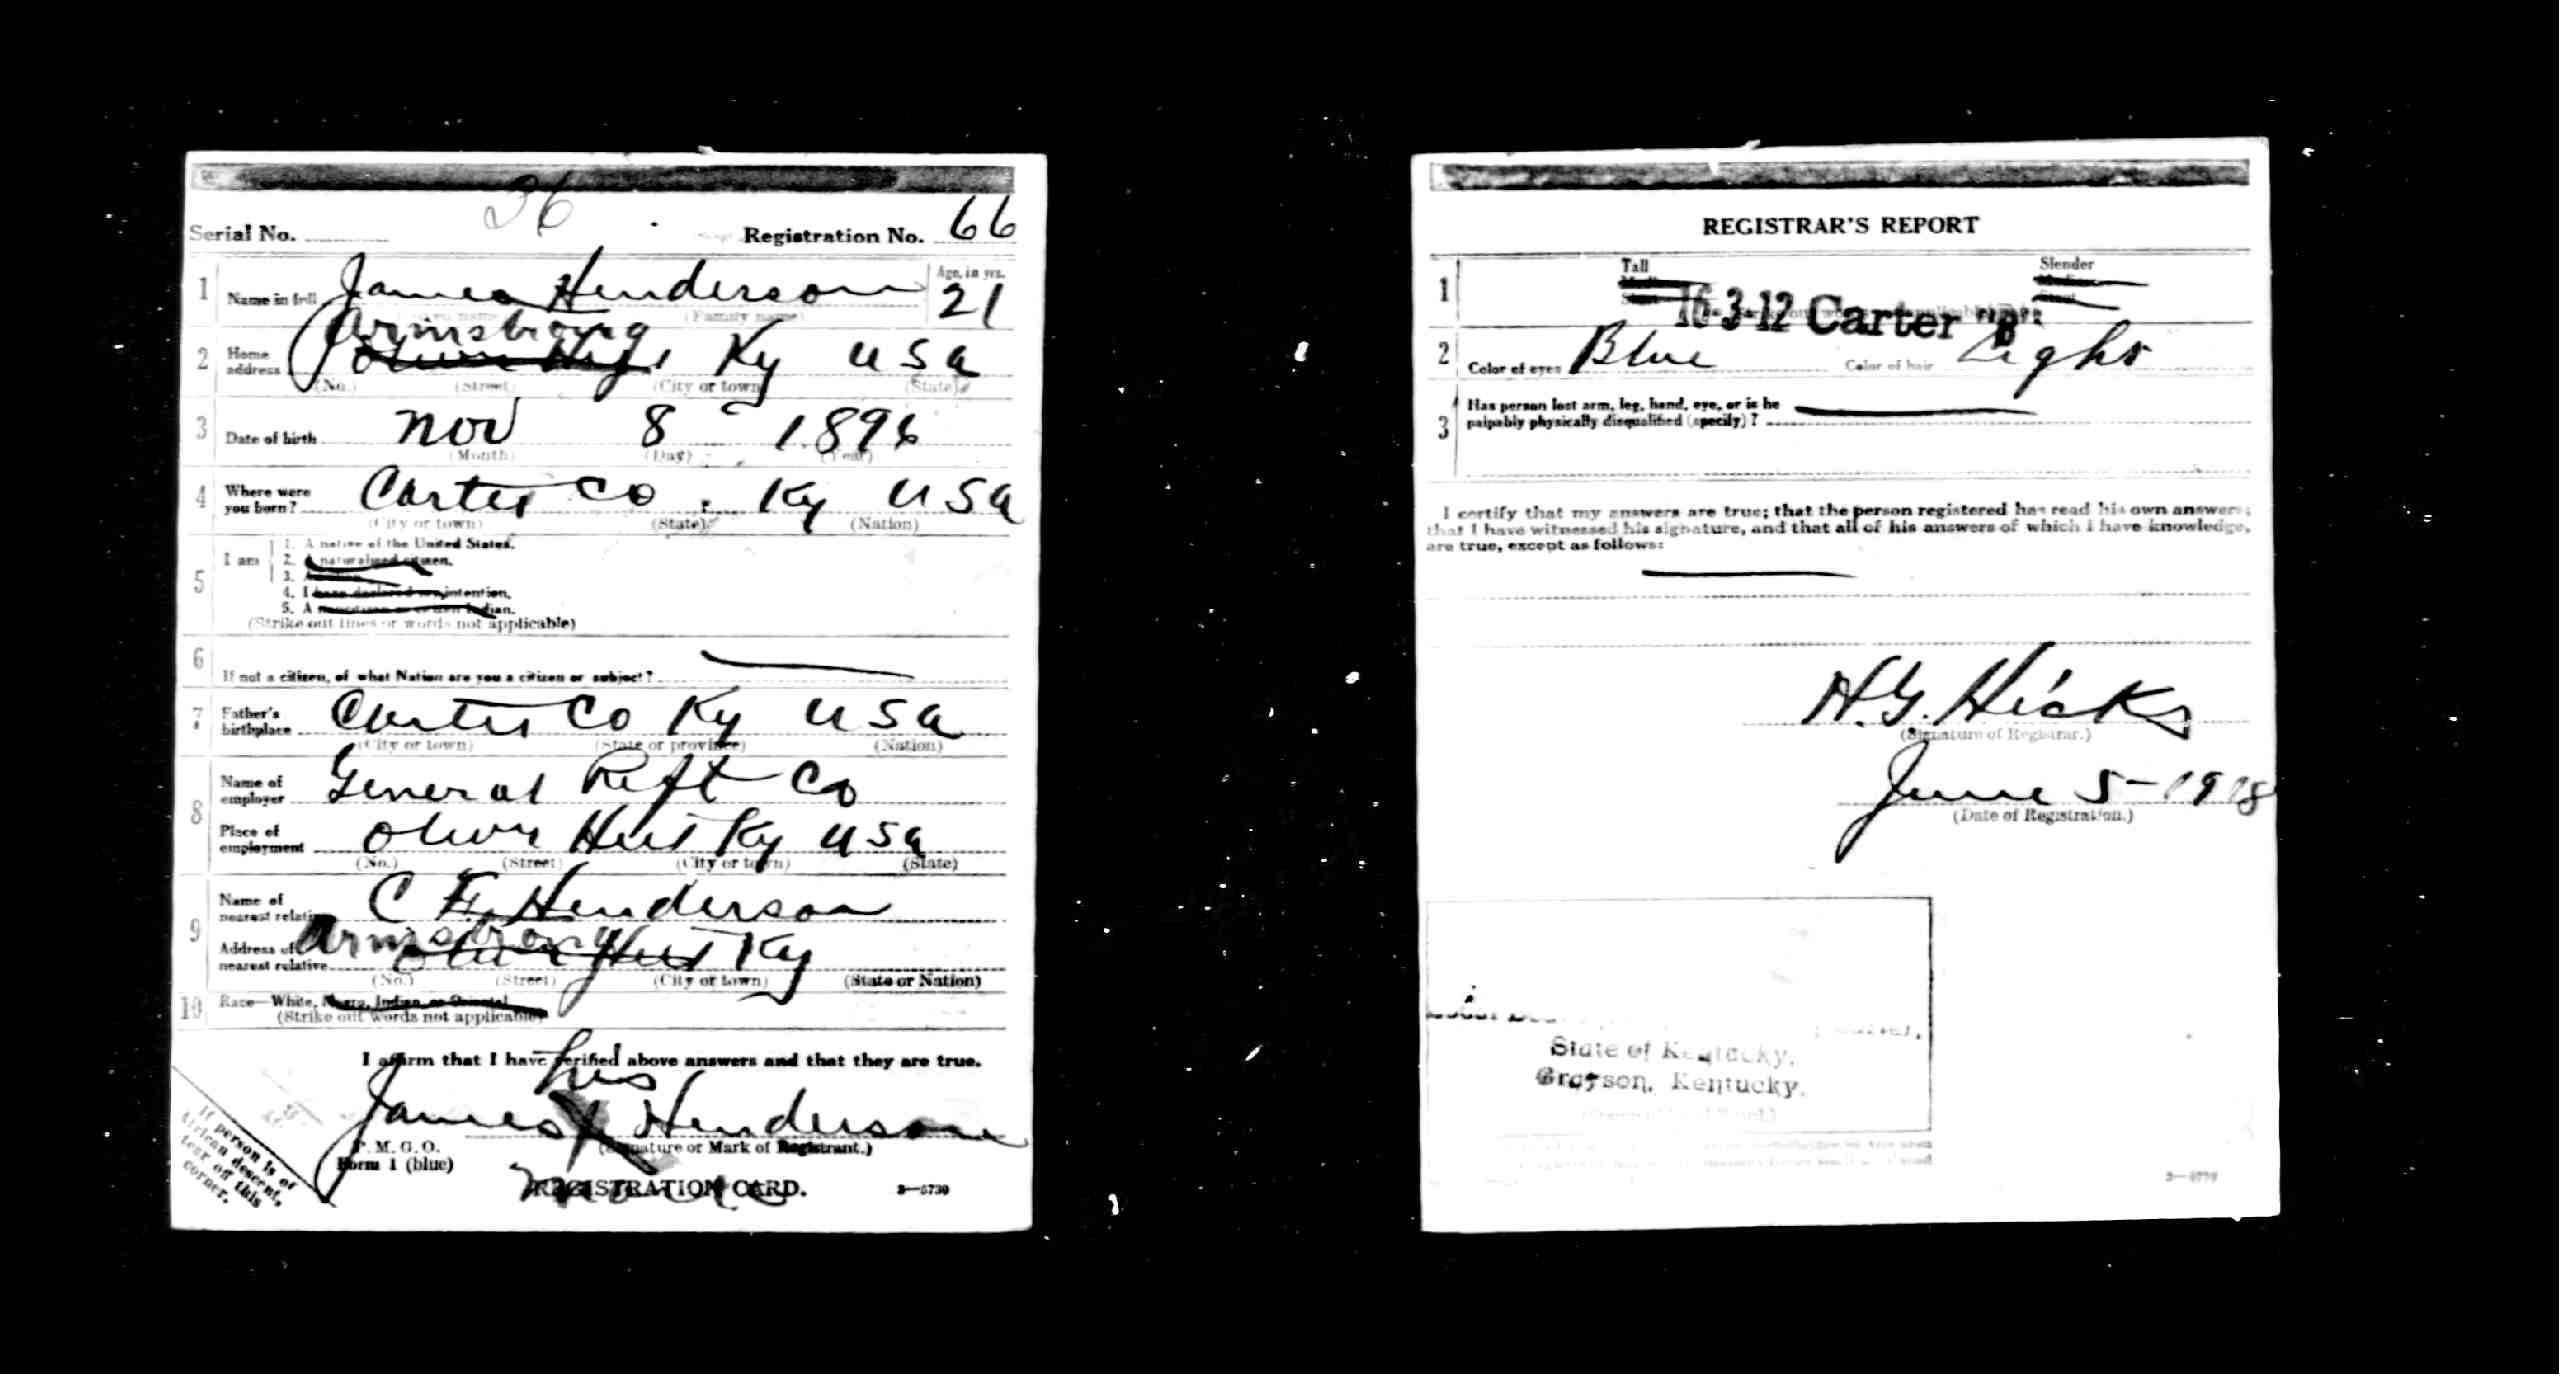 36
Serial No. Registration No. 66
1 Name in full James Henderson Age, in yrs. 21
(Family name)
Armstrong
2 Home address Olive Hill Ky USA
(No.) (Street) (City or town) (State)
3 Date of birth Nov 8 1896
(Month) (Day) (Year)
4 Where were you born? Carter Co. Ky USA
(City or town) (State) (Nation)
5 I am 1. A native of the United States.
2. A naturalized citizen.
3. A
4. I have declared my intention.
5. A noncitizen or citizen Indian.
(Strike out lines or words not applicable)
6 If not a citizen, of what Nation are you a citizen or subject?
7 Father's birthplace Carter Co Ky USA
(City or town) (State or province) (Nation)
8 Name of employer General Reft Co
Place of employment Olive Hill Ky USA
(No.) (Street) (City or town) (State)
9 Name of nearest relative C Henderson
Armstrong
Address of nearest relative Olive Hill Ky
(No.) (Street) (City or town) (State or Nation)
10 Race—White, Negro, Indian, or Oriental
(Strike out words not applicable)
I affirm that I have verified above answers and that they are true.
his
James X Henderson
P. M. G. O. (Signature or Mark of Registrant.)
Form 1 (blue)
mark
REGISTRATION CARD. 3—6730
If person is of
African descent,
tear off this
corner.
REGISTRAR'S REPORT
1 Tall Slender
16-3-12 Carter "B"
2 Color of eyes Blue Color of hair Light
3 Has person lost arm, leg, hand, eye, or is he
palpably physically disqualified (specify)?
I certify that my answers are true; that the person registered has read his own answers;
that I have witnessed his signature, and that all of his answers of which I have knowledge,
are true, except as follows:
H.G. Hicks
(Signature of Registrar.)
June 5-1918
(Date of Registration.)
State of Kentucky,
Grayson, Kentucky.
3—6730